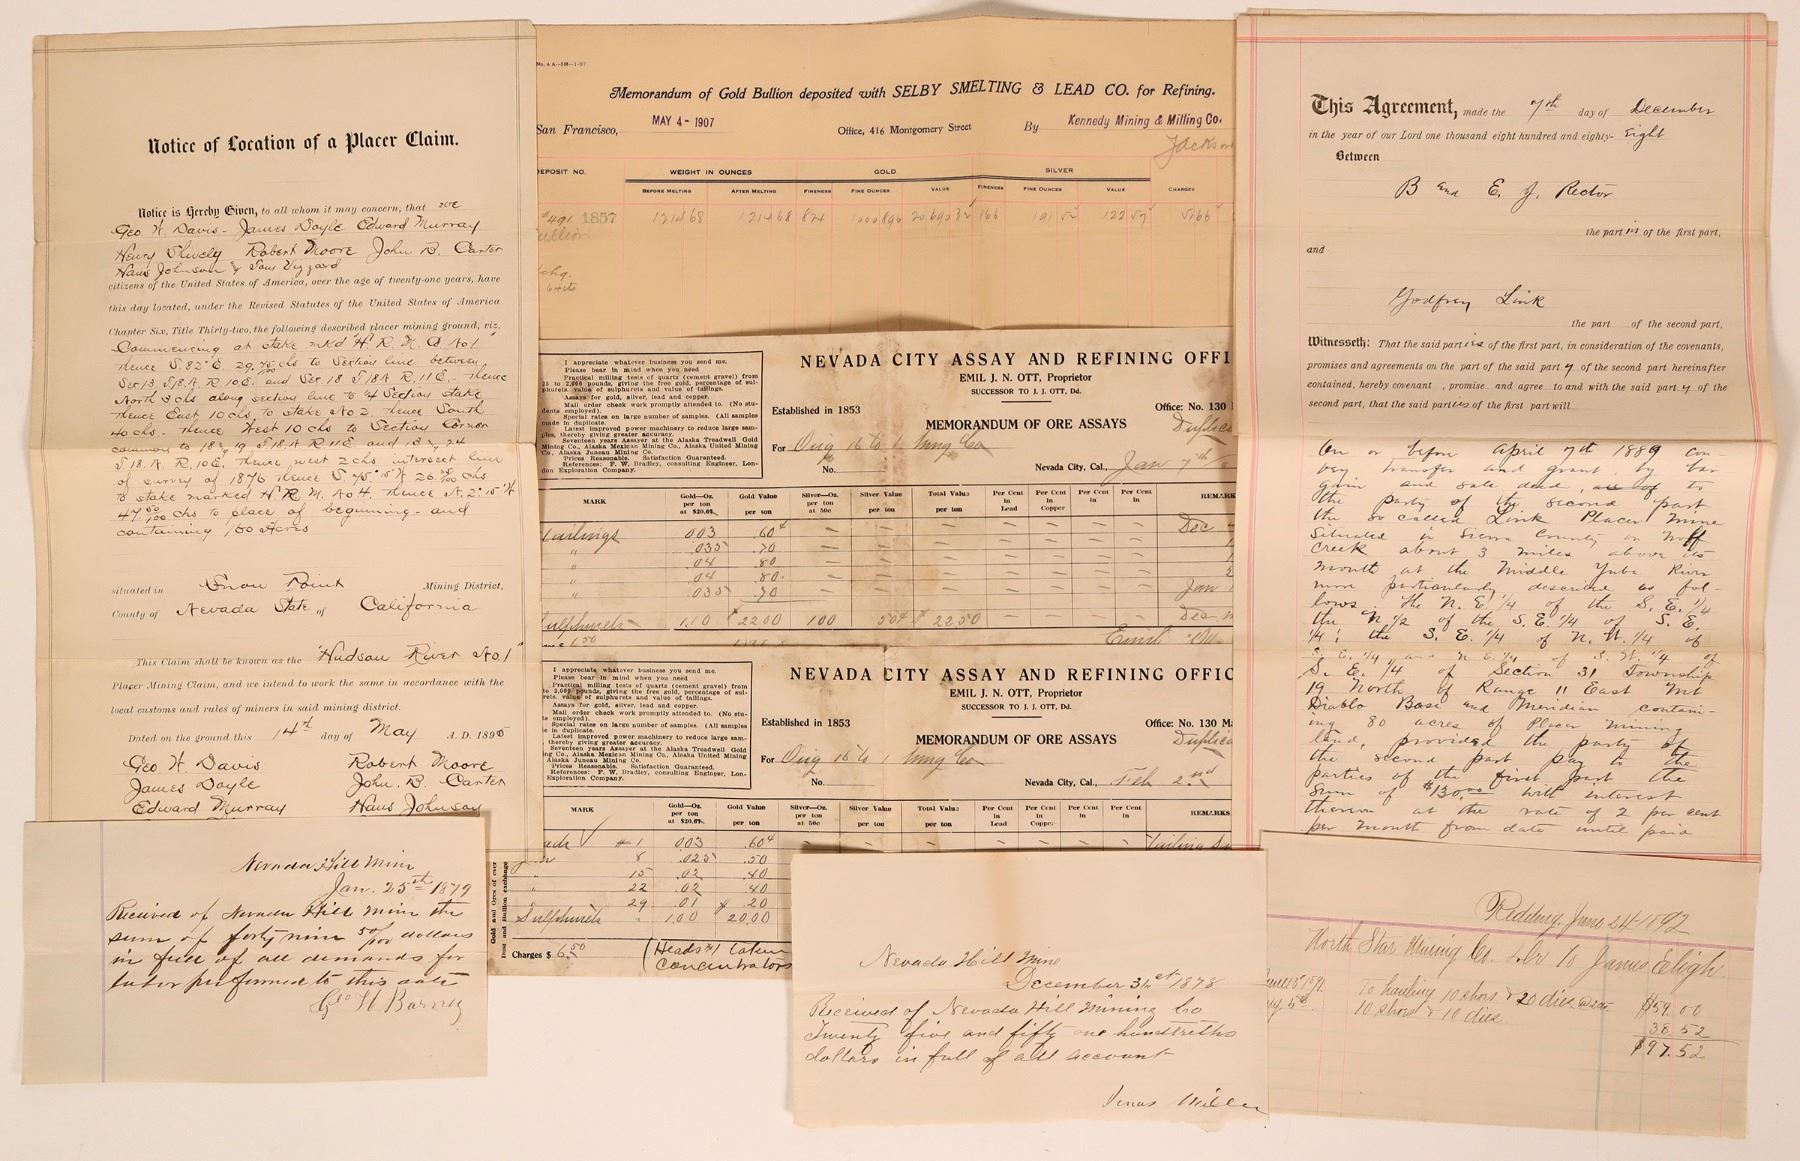 Notice of Location of a Placer Claim.
Notice is Hereby Given, to all whom it may concern, that we
Geo W. Davis - James Doyle Edward Murray
Henry Shively Robert Moore John B. Carter
Hans Johnson &
citizens of the United States of America, over the age of twenty-one years, have
this day located, under the Revised Statutes of the United States of America
Chapter Six, Title Thirty-two, the following described placer mining ground, viz:
Commencing at stake mkd H. R. M. Co No 1
thence S. 82° E. 29.75/100 chs to Section line between
Sec 13 T18.N. R. 10E. and Sec. 18 T18N R. 11E. - thence
North 3 chs along section line to 1/4 Section stake
thence East 10 chs to stake No 2. thence South
40 chs. thence West 10 chs to Section Corner
common to 18 & 19 T18.N R 11E and 13 & 24
T18. N. R. 10E. thence west 2 chs intersect line
of survey of 1876 thence S. 75° 15' W 26 chs
to stake marked H R. M. No 4. thence N. 2° 15' W
47 50/100 chs to place of beginning - and
containing 160 Acres
situated in Snow Point Mining District,
County of Nevada State of California
This Claim shall be known as the "Hudson River No. 1"
Placer Mining Claim, and we intend to work the same in accordance with the
local customs and rules of miners in said mining district.
Dated on the ground this 14th day of May A. D. 1895
Geo W. Davis Robert Moore
James Doyle John. B. Carter
Edward Murray Hans Johnson
No. 4 A--5M--1-07
Memorandum of Gold Bullion deposited with SELBY SMELTING & LEAD CO. for Refining.
San Francisco, MAY 4 - 1907 Office, 416 Montgomery Street By Kennedy Mining & Milling Co.
Jackson
DEPOSIT NO. WEIGHT IN OUNCES GOLD SILVER
BEFORE MELTING AFTER MELTING FINENESS FINE OUNCES VALUE FINENESS FINE OUNCES VALUE CHARGES
#491 1857 1214 68 1214 68 824 1000.896 20690 82 166 191 52 122 57
Bullion
chg.
I appreciate whatever business you send me.
Please bear in mind when you need
Practical milling tests of quartz (cement gravel) from
25 to 2,000 pounds, giving the free gold, percentage of sul-
phurets, value of sulphurets and value of tailings.
Assays for gold, silver, lead and copper.
Mail order check work promptly attended to. (No stu-
dents employed).
Special rates on large number of samples. (All samples
made in duplicate.
Latest improved power machinery to reduce large sam-
ples, thereby giving greater accuracy.
Seventeen years Assayer at the Alaska Treadwell Gold
Mining Co., Alaska Mexican Mining Co., Alaska United Mining
Co., Alaska Juneau Mining Co.
Prices Reasonable. Satisfaction Guaranteed.
References: F. W. Bradley, consulting Engineer, Lon-
don Exploration Company.
NEVADA CITY ASSAY AND REFINING OFFI
EMIL J. N. OTT, Proprietor
SUCCESSOR TO J. J. OTT, Dd.
Established in 1853 Office: No. 130
MEMORANDUM OF ORE ASSAYS Duplica
For Orig 16 to 1 Mng Co
No. Nevada City, Cal., Jan 7th
MARK Gold—Oz. per ton at $20.67. Gold Value per ton Silver—Oz. per ton at 50c Silver Value per ton Total Value per ton Per Cent in Lead Per Cent in Copper Per Cent in Per Cent in REMARK
Tailings .003 .60 — — — — — — — Dec
" .035 .70 — — — — — — —
" .04 .80 — — — — — — —
" .04 .80 — — — — — — —
" .035 .70 — — — — — — — Jan
Sulphurets 1.10 $ 22 00 1.00 50¢ $ 22 50 — — — — Dec
I appreciate whatever business you send me.
Please bear in mind when you need
Practical milling tests of quartz (cement gravel) from
to 2,000 pounds, giving the free gold, percentage of sul-
rets, value of sulphurets and value of tailings.
Assays for gold, silver, lead and copper.
Mail order check work promptly attended to. (No stu-
ts employed).
Special rates on large number of samples. (All samples
e in duplicate.
Latest improved power machinery to reduce large sam-
thereby giving greater accuracy.
Seventeen years Assayer at the Alaska Treadwell Gold
ng Co., Alaska Mexican Mining Co., Alaska United Mining
Alaska Juneau Mining Co.
Prices Reasonable. Satisfaction Guaranteed.
References: F. W. Bradley, consulting Engineer, Lon-
Exploration Company.
NEVADA CITY ASSAY AND REFINING OFFIC
EMIL J. N. OTT, Proprietor
SUCCESSOR TO J. J. OTT, Dd.
Established in 1853 Office: No. 130 M
MEMORANDUM OF ORE ASSAYS Duplica
For Orig 16 to 1 Mng Co
No. Nevada City, Cal., Feb 2nd
MARK Gold—Oz. per ton at $20.67. Gold Value per ton Silver—Oz. per ton at 50c Silver Value per ton Total Value per ton Per Cent in Lead Per Cent in Copper Per Cent in Per Cent in REMARKS
#1 .003 .60¢ Tailing
8 .025 .50
15 .02 .40
22 .02 .40
29 .01 $ .20
Sulphurets 1.00 20 00
Gold and Ores of ever
Dust and Bullion exchange
Charges $ 6.50 (Heads #1 taken
concentrators
This Agreement, made the 7th day of December
in the year of our Lord one thousand eight hundred and eighty- Eight
Between
B and E. J. Rector
the parties of the first part,
and
Godfrey Link
the part of the second part,
Witnesseth: That the said parties of the first part, in consideration of the covenants,
promises and agreements on the part of the said party of the second part hereinafter
contained, hereby covenant , promise and agree to and with the said party of the
second part, that the said parties of the first part will
On or before April 7th 1889 con-
vey transfer and grant by bar
gain and sale deed, to
the party of the second part
the so called Link Placer Mine
Situated in Sierra County on Wolf
Creek about 3 miles above its
mouth at the Middle Yuba River
more particularly describe as fol-
lows. The N. E. 1/4 of the S. E. 1/4
the N. 1/2 of the S. E. 1/4 of S. E.
1/4; the S. E. 1/4 of N. W. 1/4 of
S. E. 1/4, and N. E. 1/4 of S. W. 1/4 of
S. E. 1/4 of Section 31 Township
19 North of Range 11 East Mt
Diablo Base and Meridian contain-
ing 80 acres of Placer mining
land, provided the party of
the second part pay to the
parties of the first part the
sum of $1300.00 with interest
thereon at the rate of 2 per cent
per month from date until paid
Nevada Hill Mine
Jan. 25th 1879
Received of Nevada Hill Mine the
sum of forty nine 50/100 dollars
in full of all demands for
labor performed to this date
Geo H Barney
Nevada Hill Mine
December 31st 1878
Received of Nevada Hill Mining Co
Twenty five and fifty one hundredths
dollars in full of all account
Jonas Miller
Redding. June 24 1892
North Star Mining Co. Dr To James Eligh.
To hauling 10 shoes & 20 dies $59.00
10 shoes & 10 dies 38.52
$97.52